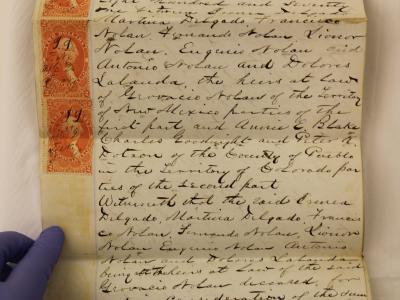 Eight Hundred and Seventy
Martina Delgado, Francisco
Nolan, Fernando Nolan, Livior
Nolan, Eugenio Nolan and
Antonio Nolan and Dolores
Lalanda, the heirs at law
of Gervacio Nolan of the Territory
of New Mexico parties of the
first part, and Alonzo E. Blake
Charles Goodnight and Peter K.
Dotson of the County of Pueblo
in the Territory of Colorado par
ties of the second part
Witnesseth that the said Irenea
Delgado, Martina Delgado, Francis
co Nolan, Fernando Nolan, Livior
Nolan Eugenio Nolan Antonio
Nolan and Dolores Lalanda
being the heirs at Law of the said
Gervacio Nolan deceased, for
Consideration of the sum